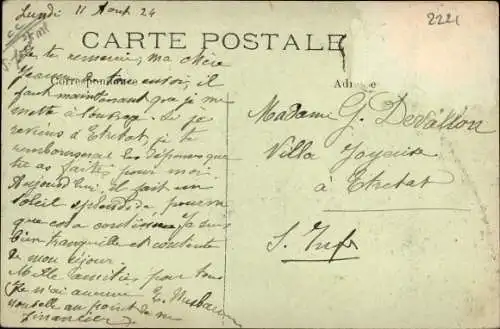 Lundi 11 Aout 24
2221
CARTE POSTALE
Je te remercie, ma chère
Jeanne de ton envoi, il
Correspondance
Adresse
faut maintenant que je me
mette à l'ouvrage. Si je
reviens à Etretat, je te
rembourserai les dépenses que
tu as faites pour moi.
Aujourd'hui, il fait un
soleil splendide pourvu
que cela continue. Je suis
bien tranquille et contente
de mon séjour.
Mille amitiés pour tous
Je n'ai aucune
nouvelle au point de vue
financier.
Madame G. Devallon
Villa Joyeuse
à Etretat
S. Infre